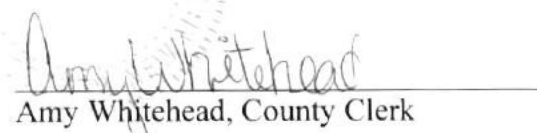 Amy Whitehead
Amy Whitehead, County Clerk